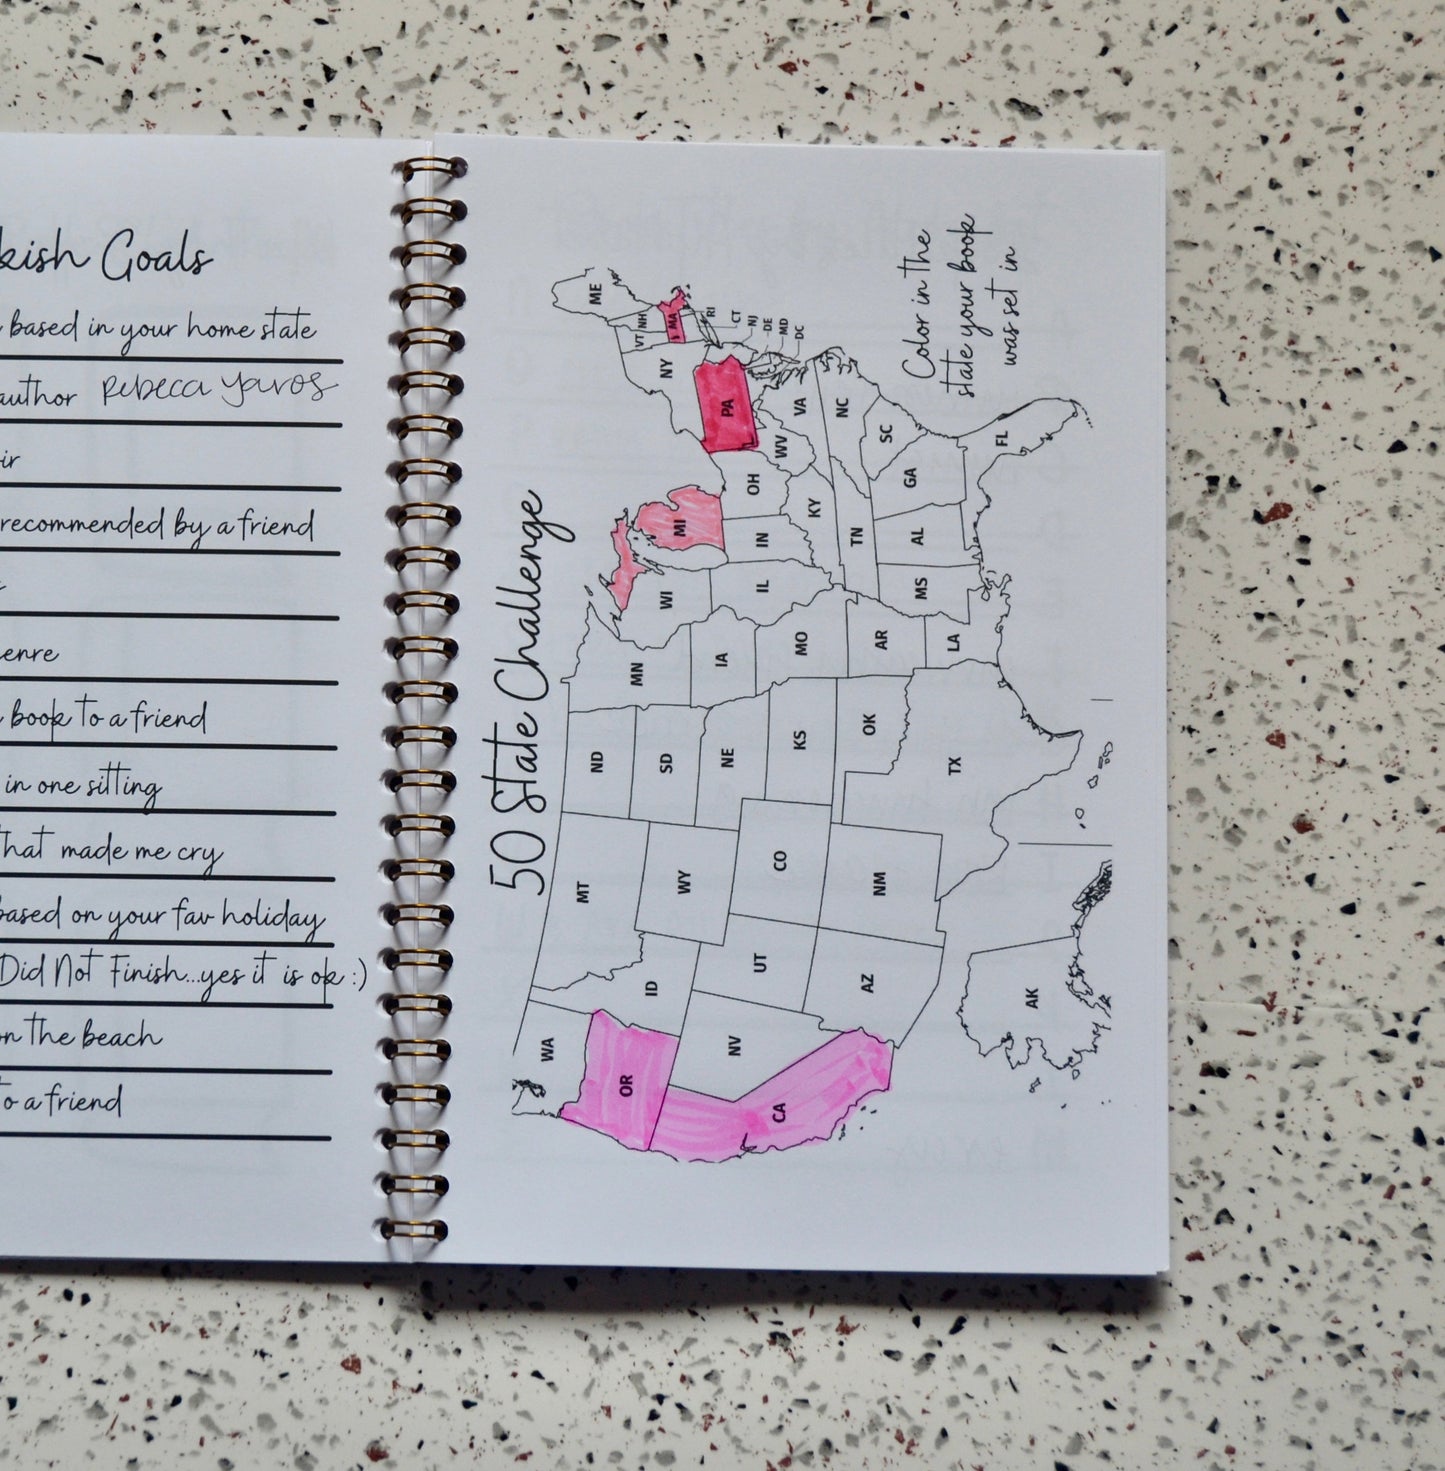 kish Goals
based in your home state
author Rebecca Yaros
ir
recommended by a friend
enre
book to a friend
in one sitting
that made me cry
based on your fav holiday
Did Not Finish...yes it is ok :)
on the beach
to a friend
50 State Challenge
Color in the
state your book
was set in
WA
OR
CA
ID
NV
MT
WY
UT
AZ
CO
NM
ND
SD
NE
KS
OK
TX
MN
IA
MO
AR
LA
WI
IL
MS
MI
IN
KY
TN
AL
OH
GA
WV
SC
FL
PA
VA
NC
NY
VT
NH
MA
ME
RI
CT
NJ
DE
MD
DC
AK